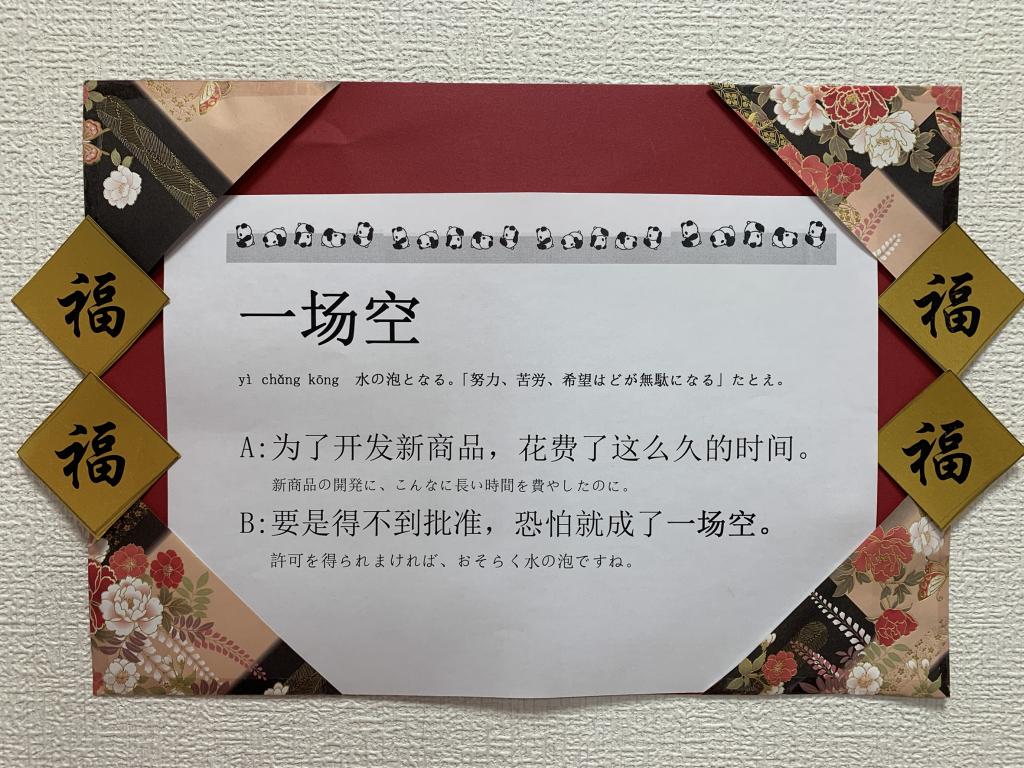 一场空
yì chǎng kōng 水の泡となる。「努力、苦労、希望はどが無駄になる」たとえ。
A:为了开发新商品，花费了这么久的时间。
新商品の開発に、こんなに長い時間を費やしたのに。
B:要是得不到批准，恐怕就成了一场空。
許可を得られまければ、おそらく水の泡ですね。
福
福
福
福